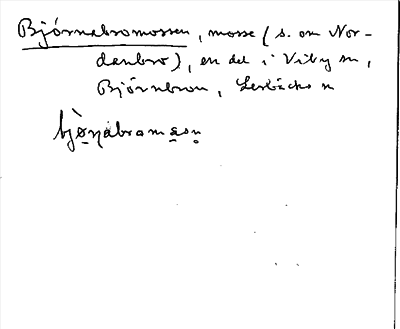 Björnabromossen, mosse (s. om Nor-
danbro), en del i Viby sn,
Björnbron, Lerbäcks sn
bjø̀ṇabramasn̥